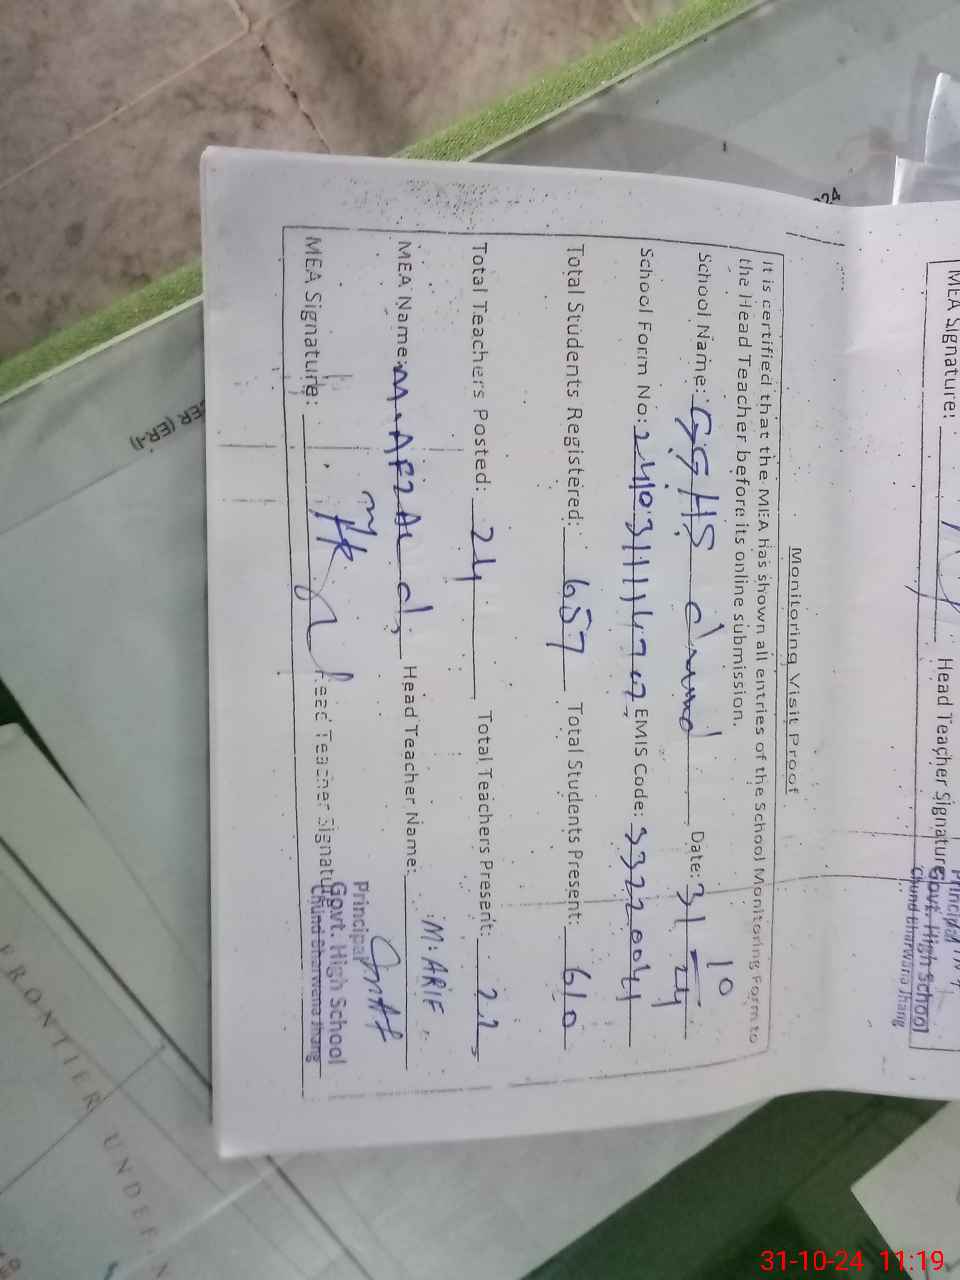 Monitoring Visit Proof
It is certified that the MEA has shown all entries of the School Monitoring Form to
the Head Teacher before its online submission.
School Name: GGHS Date: 31 10 24
School Form No: EMIS Code: 33220041
Total Students Registered: 657 Total Students Present: 610
Total Teachers Posted: 24 Total Teachers Present: 22
MEA Name: M. AFZAL Head Teacher Name: M. ARIF
MEA Signature: Head Teacher Signature
Principal
Govt. High School
Chund Bharwana Jhang
MEA Signature: Head Teacher Signature
Principal
Govt. High School
Chund Bharwana Jhang
CER (ER-I)
FRONTIER UNDER
31-10-24 11:19